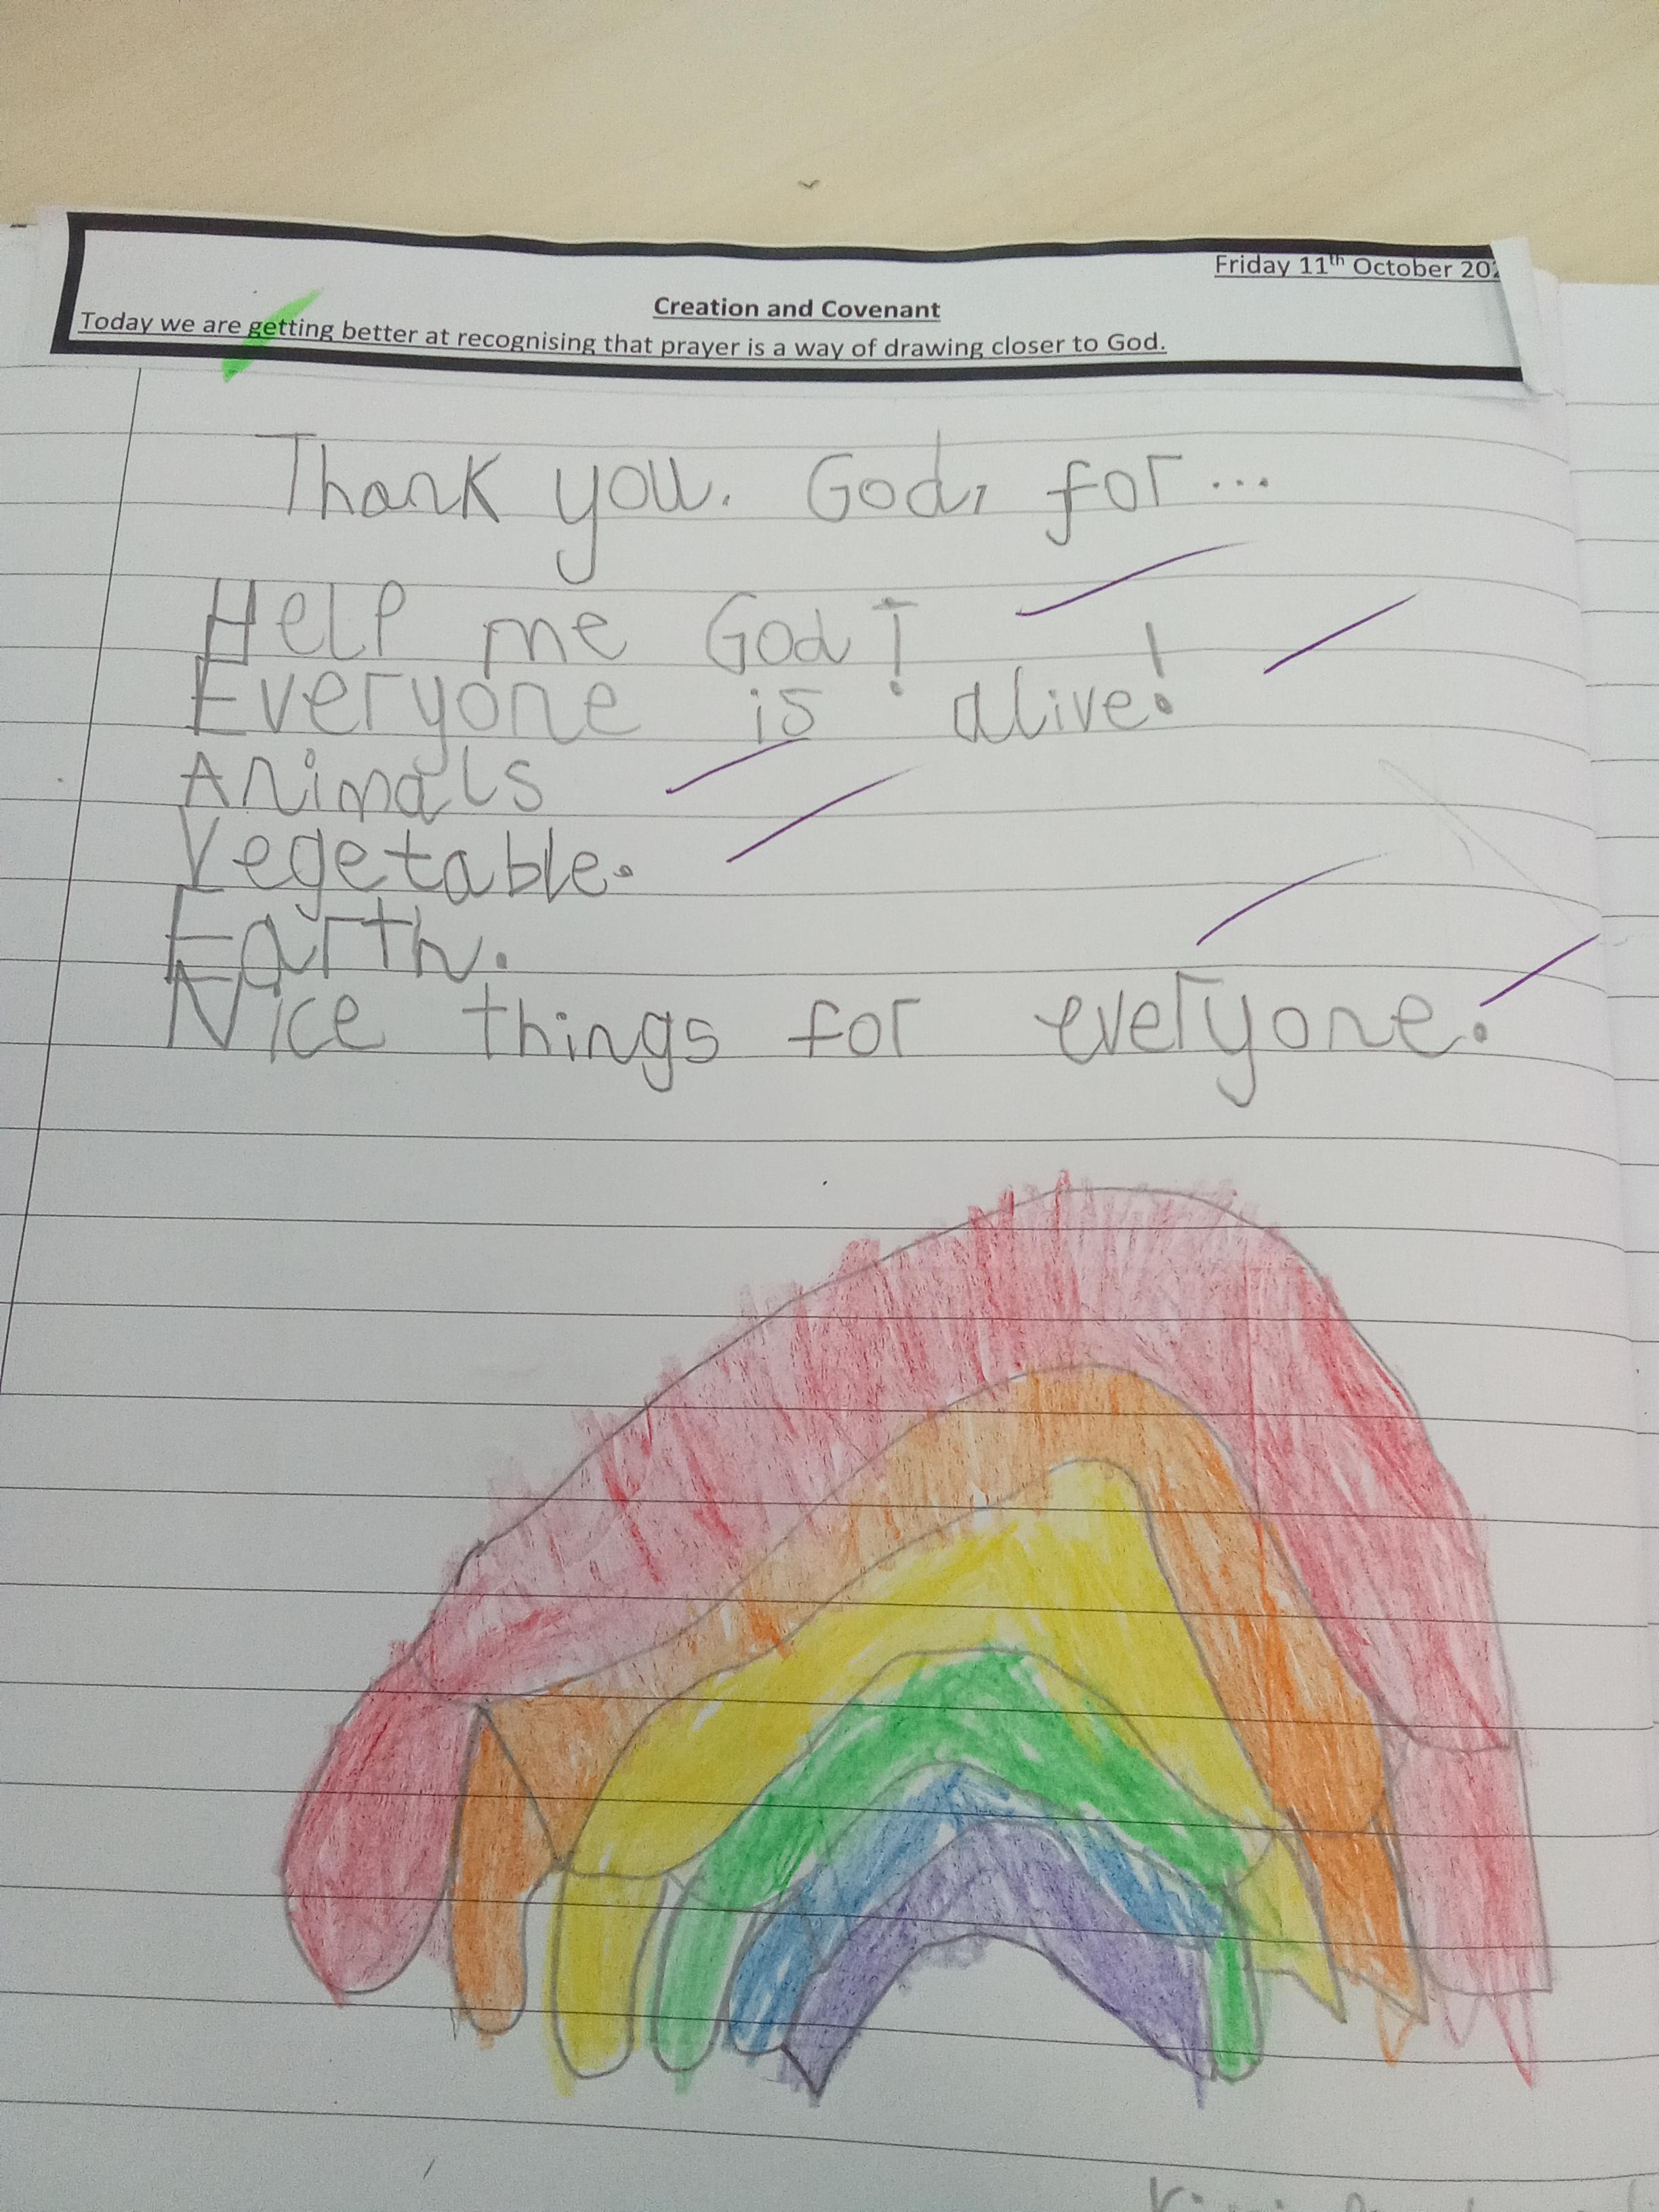 Friday 11th October 202
Creation and Covenant
Today we are getting better at recognising that prayer is a way of drawing closer to God.
Thank you. God, for...
Help me God!
Everyone is alive!
Animals
Vegetable.
Earth.
Nice things for everyone.